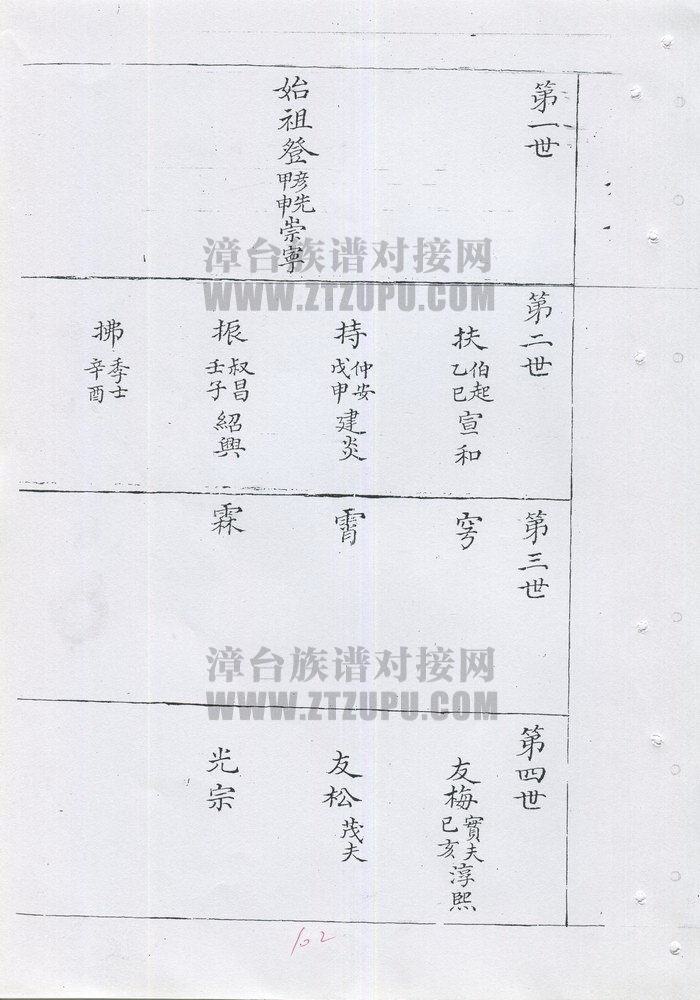 第一世
始祖登彥先甲申崇寧
第二世
扶伯起乙巳宣和
持仲安戊申建炎
振叔昌壬子紹興
拂季士辛酉
第三世
霄
霖
第四世
友梅實夫己亥淳熙
友松茂夫
光宗
漳台族谱对接网
WWW.ZTZUPU.COM
漳台族谱对接网
WWW.ZTZUPU.COM
102